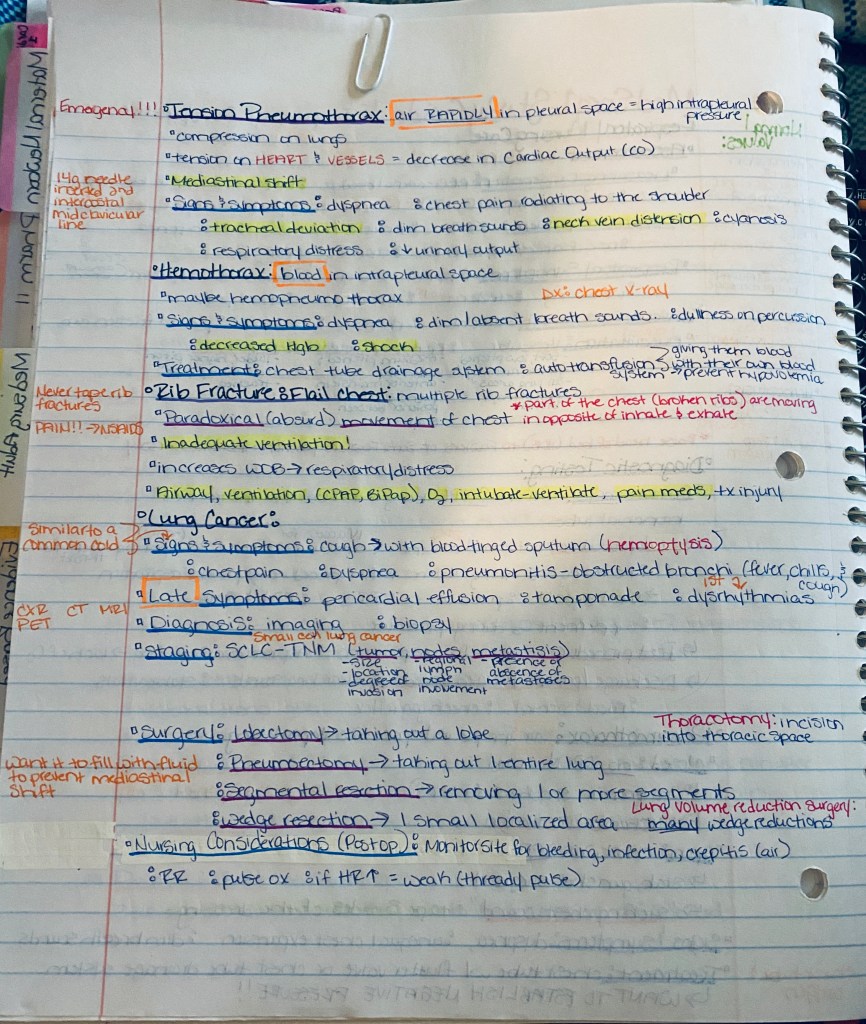 Emergenal!!! Tension Pneumothorax: air RAPIDLY in pleural space = high intrapleural pressure!
compression on lungs
tension on HEART & VESSELS = decrease in Cardiac Output (CO)
Mediastinal shift
14g needle inserted and intercostal midclavicular line
Signs & symptoms: dyspnea chest pain radiating to the shoulder
tracheal deviation dim breath sounds neck vein distension cyanosis
respiratory distress ↓ urinary output
Hemothorax: blood in intrapleural space
maybe hemopneumo thorax
DX: chest X-ray
Signs & symptoms: dyspnea dim/absent breath sounds. dullness on percussion
decreased Hgb shock
Treatment: chest tube drainage system autotransfusion system
giving them blood
with their own blood
→ prevent hypovolemia
Never tape rib fractures
Rib Fracture: Flail chest: multiple rib fractures
* part of the chest (broken ribs) are moving
in opposite of inhale & exhale
PAIN!! → NSAIDS
Paradoxical (absurd) movement of chest
Inadequate ventilation!
increases WOB → respiratory distress
Airway, ventilation, (CPAP, BiPap), O2, intubate-ventilate, pain meds, tx injury
Lung Cancer:
Similar to a common cold
Signs & symptoms: cough → with blood tinged sputum (hemioptysis)
chest pain Dyspnea pneumonitis - obstructed bronchi (fever, chills, & cough)
Late Symptoms: pericardial effusion tamponade dysrhythmias
1st
CXR CT MRI
PET
Diagnosis: imaging biopsy
Small cell lung cancer
Staging: SCLC-TNM (tumor, nodes, metastisis)
-size
-location
-degree of invasion
-regional lymph node involvement
-presence of absence of metastases
Surgery: Lobectomy → taking out a lobe
Thoracotomy: incision
into thoracic space
want it to fill with fluid
to prevent mediastinal
shift
Pneumoectomy → taking out 1 entire lung
Segmental resection → removing 1 or more segments
wedge resection → 1 small localized area
Lung volume reduction surgery:
many wedge reductions
Nursing Considerations (Postop): Monitor site for bleeding, infection, crepitis (air)
RR pulse ox if HR↑ = weak (thready pulse)